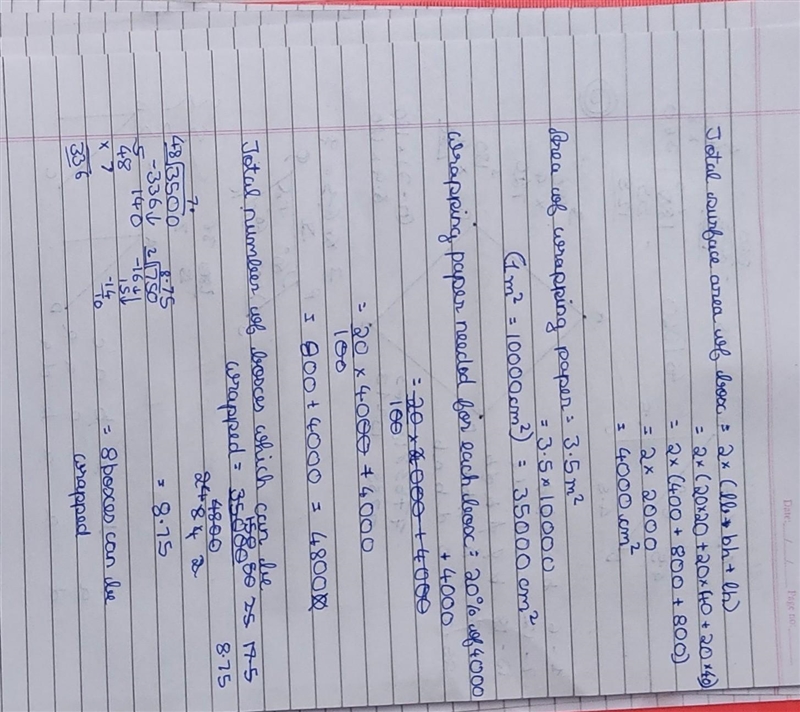 Date __/__/__ Page no.
Total surface area of box = 2 × (lb + bh + lh)
= 2 × (20×20 + 20×40 + 20×40)
= 2 × (400 + 800 + 800)
= 2 × 2000
= 4000 cm²
Area of wrapping paper = 3.5 m²
= 3.5 × 10000
(1 m² = 10000 cm²) = 35000 cm²
Wrapping paper needed for each box = 20% of 4000
+ 4000
= 20 × 4000 + 4000
100
= 20 × 4000 + 4000
100
= 800 + 4000 = 4800
Total number of boxes which can be
wrapped = 35000
4800
17.5
8.75
= 8.75
= 8 boxes can be
wrapped
7.
48)3500
-336↓
140
5
48
× 7
336
8.75
2)1750
-16↓
15↓
-14
10